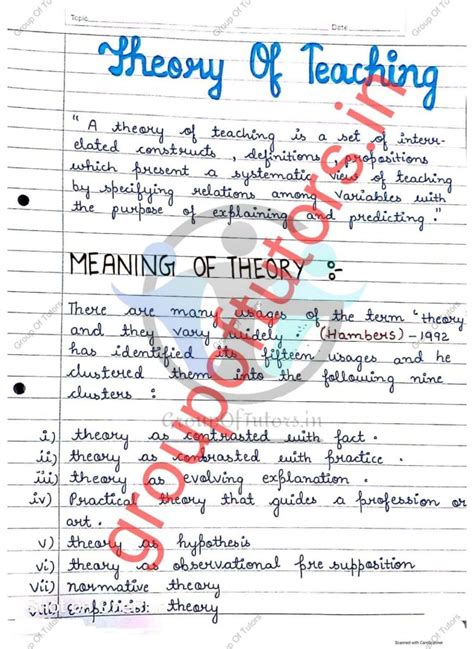 Topic
Date
Theory Of Teaching
" A theory of teaching is a set of interr-
elated constructs, definitions, propositions
which present a systematic view of teaching
by specifying relations among variables with
the purpose of explaining and predicting."
MEANING OF THEORY :-
There are many usages of the term "theory
and they vary widely. (Hambers) - 1992
has identified its fifteen usages and he
clustered them into the following nine
clusters :
GroupOfTutors.in
i) theory as contrasted with fact.
ii) theory as contrasted with practice.
iii) theory as evolving explanation.
iv) Practical theory that guides a profession or
art.
v) theory as hypothesis
vi) theory as observational pre supposition
vii) normative theory
viii) theory
groupoftutors.in
Group Of Tutors
Group Of Tutors
Group Of Tutors
Group Of Tutors
Group Of Tutors
Group Of Tutors
Scanned with CamScanner